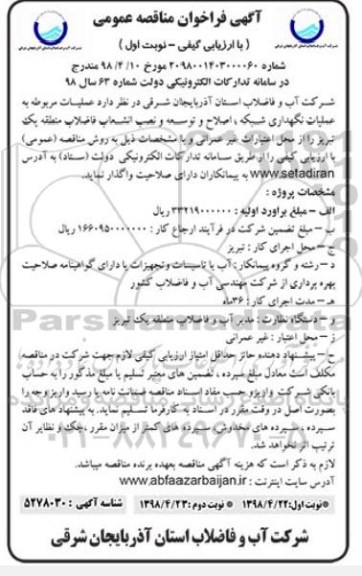 آگهی فراخوان مناقصه عمومی
( با ارزیابی کیفی – نوبت اول )
شماره ۲۰۹۸۰۰۱۴۰۳۰۰۰۰۶۰ مورخ ۹۸/۴/۱۰ مندرج
در سامانه تدارکات الکترونیکی دولت شماره ۶۳ سال ۹۸
شرکت آب و فاضلاب استان آذربایجان شرقی در نظر دارد عملیات مربوطه به
عملیات نگهداری شبکه ، اصلاح و توسعه و نصب انشعاب فاضلاب منطقه یک
تبریز را از محل اعتبارات غیر عمرانی و با مشخصات ذیل به روش مناقصه (عمومی)
با ارزیابی کیفی را از طریق سامانه تدارکات الکترونیکی دولت (ستاد) به آدرس
www.setadiran به پیمانکاران دارای صلاحیت واگذار نماید.
مشخصات پروژه :
الف – مبلغ براورد اولیه : ۳۳۲۱۹۰۰۰۰۰۰ ریال
ب – مبلغ تضمین شرکت در فرآیند ارجاع کار : ۱۶۶۰۹۵۰۰۰۰۰۰ ریال
ج – محل اجرای کار : تبریز
د – رشته و گروه پیمانکار: آب یا تاسیسات وتجهیزات یا دارای گواهینامه صلاحیت
بهره برداری از شرکت مهندسی آب و فاضلاب کشور
هـ – مدت اجرای کار : ۳۶ماه
و – دستگاه نظارت : مدیر آب و فاضلاب منطقه یک تبریز
ز – محل اعتبار : غیر عمرانی
ح – پیشنهاد دهنده حائز حداقل امتیاز ارزیابی کیفی لازم جهت شرکت در مناقصه
مکلف است معادل مبلغ سپرده ، تضمین های معتبر تسلیم یا مبلغ مذکور را به حساب
بانکی شرکت واریز و حسب مفاد اسناد مناقصه ضمانت نامه یا رسید واریز وجه را
بصورت اصل در وقت مقرر در اسناد به کارفرما تسلیم نماید. به پیشنهاد های فاقد
سپرده ، سپرده های مخدوش، سپرده های کمتر از میزان مقرر ،چک و نظایر آن
ترتیب اثر نخواهد شد.
لازم به ذکر است که هزینه آگهی مناقصه بعهده برنده مناقصه میباشد.
آدرس سایت اینترنت : www.abfaazarbaijan.ir
*نوبت اول:۱۳۹۸/۴/۲۲ *نوبت دوم: ۱۳۹۸/۴/۲۳ شناسه آگهی : ۵۲۷۸۰۳۰
شرکت آب و فاضلاب استان آذربایجان شرقی
ParsNamadData
۰۲۱-۸۸۳۴۹۶۷۰-۵